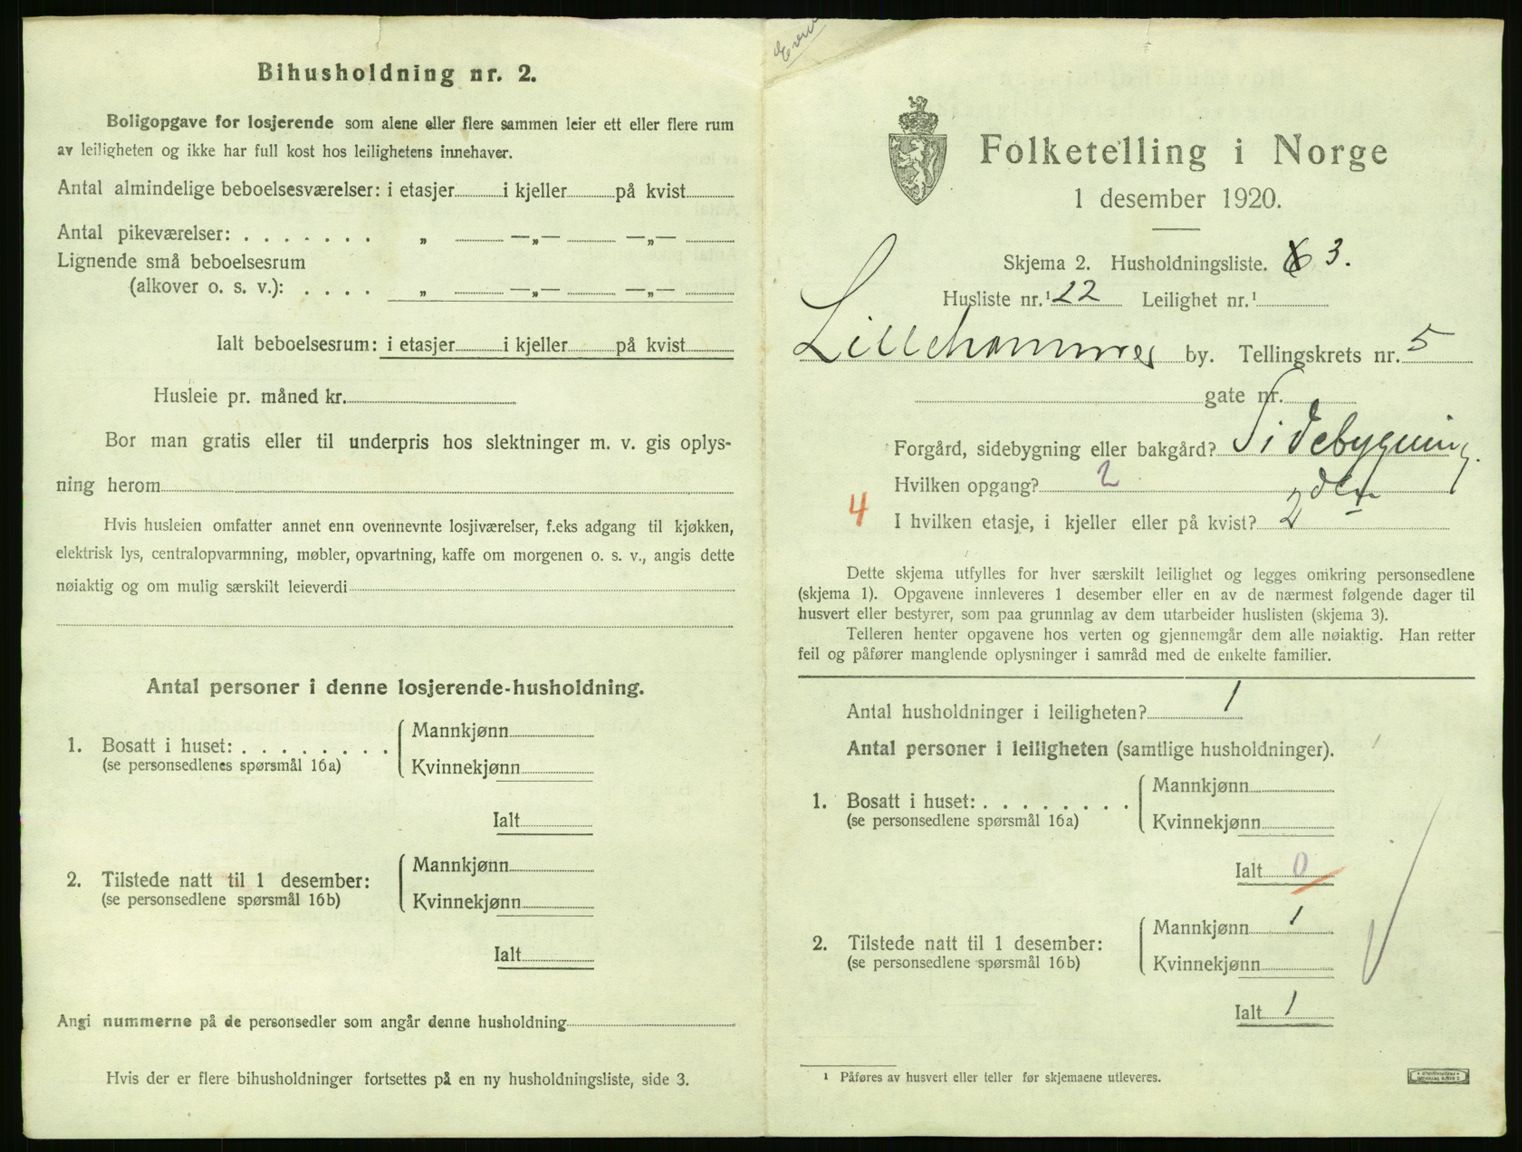 Bihusholdning nr. 2.
Boligopgave for losjerende som alene eller flere sammen leier ett eller flere rum
av leiligheten og ikke har full kost hos leilighetens innehaver.
Antal almindelige beboelsesværelser: i etasjer i kjeller på kvist
Antal pikeværelser: . . . . . . . „ —„— —„—
Lignende små beboelsesrum
(alkover o. s. v.): . . . . „ —„— —„—
Ialt beboelsesrum: i etasjer i kjeller på kvist
Husleie pr. måned kr.
Bor man gratis eller til underpris hos slektninger m. v. gis oplys-
ning herom
Hvis husleien omfatter annet enn ovennevnte losjiværelser, f.eks adgang til kjøkken,
elektrisk lys, centralopvarmning, møbler, opvartning, kaffe om morgenen o. s. v., angis dette
nøiaktig og om mulig særskilt leieverdi
Antal personer i denne losjerende-husholdning.
1. Bosatt i huset: . . . . . . . .
(se personsedlenes spørsmål 16a)
Mannkjønn
Kvinnekjønn
Ialt
2. Tilstede natt til 1 desember:
(se personsedlene spørsmål 16b)
Mannkjønn
Kvinnekjønn
Ialt
Angi nummerne på de personsedler som angår denne husholdning
Hvis der er flere bihusholdninger fortsettes på en ny husholdningsliste, side 3.
Folketelling i Norge
1 desember 1920.
Skjema 2. Husholdningsliste. 3.
Husliste nr.¹ 22 Leilighet nr.¹
Lillehammer by. Tellingskrets nr. 5
gate nr.
Forgård, sidebygning eller bakgård? Sidebygning
Hvilken opgang? 2
4 I hvilken etasje, i kjeller eller på kvist? 2den
Dette skjema utfylles for hver særskilt leilighet og legges omkring personsedlene
(skjema 1). Opgavene innleveres 1 desember eller en av de nærmest følgende dager til
husvert eller bestyrer, som paa grunnlag av dem utarbeider huslisten (skjema 3).
Telleren henter opgavene hos verten og gjennemgår dem alle nøiaktig. Han retter
feil og påfører manglende oplysninger i samråd med de enkelte familier.
Antal husholdninger i leiligheten? 1
Antal personer i leiligheten (samtlige husholdninger).
1. Bosatt i huset: . . . . . . . .
(se personsedlene spørsmål 16a)
Mannkjønn
Kvinnekjønn
Ialt 0
2. Tilstede natt til 1 desember:
(se personsedlene spørsmål 16b)
Mannkjønn 1
Kvinnekjønn
Ialt 1
¹ Påføres av husvert eller teller før skjemaene utleveres.